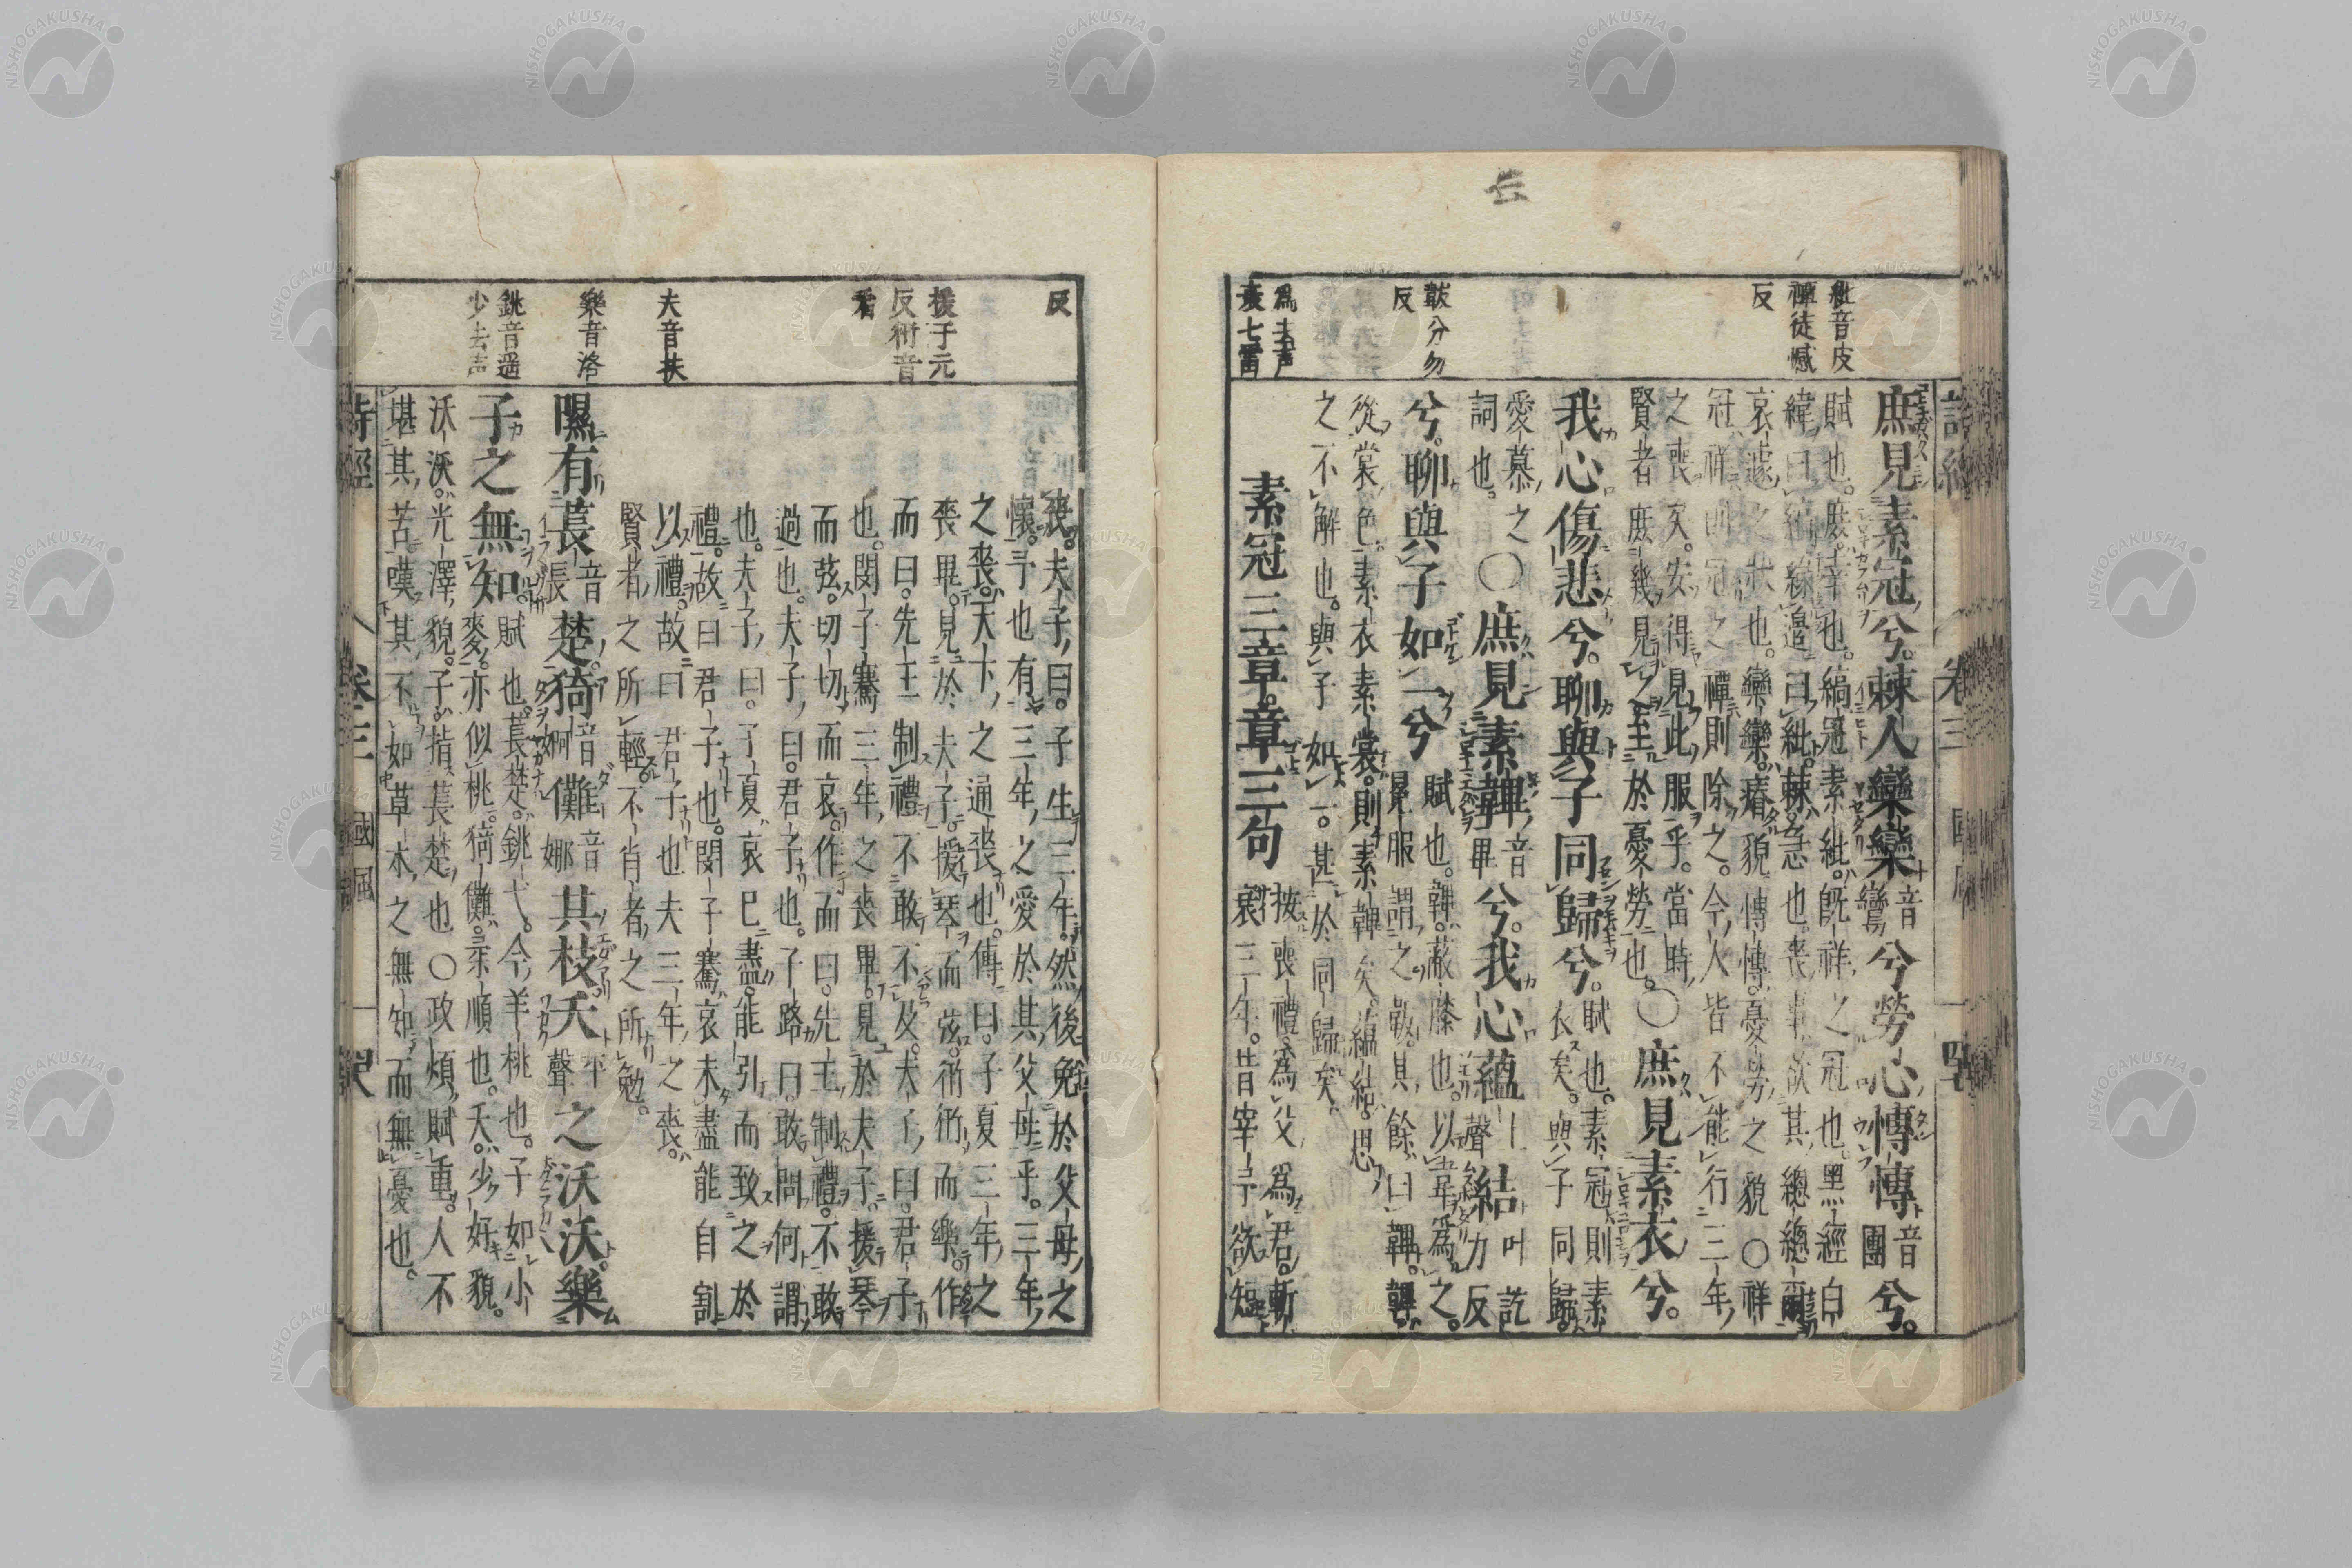 庶見素冠兮。棘人欒欒音鸞兮勞心慱慱音團兮。
賦也。庶。幸也。縞冠素紕。既祥之冠也。黑經白
緯曰縞。緣邊曰紕。棘。急也。喪事欲其總總爾
哀遽之狀也。欒欒。瘠貌。慱慱。憂勞之貌〇祥
冠。祥則冠之禫則除之。今人皆不能行三年
之喪矣。安得見此服乎。當時
賢者庶幾見之至於憂勞也。〇庶見素衣兮。
我心傷悲兮。聊與子同歸兮。賦也。素冠則素衣矣。與子同歸
愛慕之
詞也。〇庶見素韠音畢兮。我心蘊結叶訖力反
兮。聊與子如一兮賦也。韠。蔽膝也。以韋爲之。冕服謂之韍。其餘曰韠。韠
從裳色。素衣素裳。則素韠矣。蘊結。思
之不解也。與子如一。甚於同歸矣。
素冠三章。章三句按喪禮。爲父爲君。斬衰三年。昔宰予欲短
紕音皮
禫徒憾
反
韍分勿
反
爲去声
衰七雷
詩經 卷三 國風
喪。夫子曰。子生三年。然後免於父母之
懷。予也有三年之愛於其父母乎。三年
之喪。天下之通喪也。傳曰。子夏三年之
喪畢。見於夫子。援琴而弦。衎衎而樂。作
而曰。先王制禮不敢不及。夫子曰。君子
也。閔子騫三年之喪畢。見於夫子。援琴
而弦。切切而哀。作而曰。先王制禮。不敢
過也。夫子曰。君子也。子路曰。敢問何謂
也。夫子曰。子夏哀已盡。能引而致之於
禮。故曰君子也。閔子騫哀未盡能自割
以禮。故曰君子也夫三年之喪。
賢者之所輕。不肖者之所勉。
隰有萇音長楚。猗音啊儺音娜其枝夭平聲之沃沃。樂
子之無知。賦也。萇楚。銚弋。今羊桃也。子如小麥。亦似桃。猗儺。柔順也。夭。少好貌。
沃沃。光澤貌。子。指萇楚也〇政煩賦重。人不
堪其苦。嘆其不如草木之無知而無憂也。
反
援于元
反衎音
看
夫音扶
樂音洛
銚音遥
少去声
詩經 卷三 國風
NISHOGAKUSHA